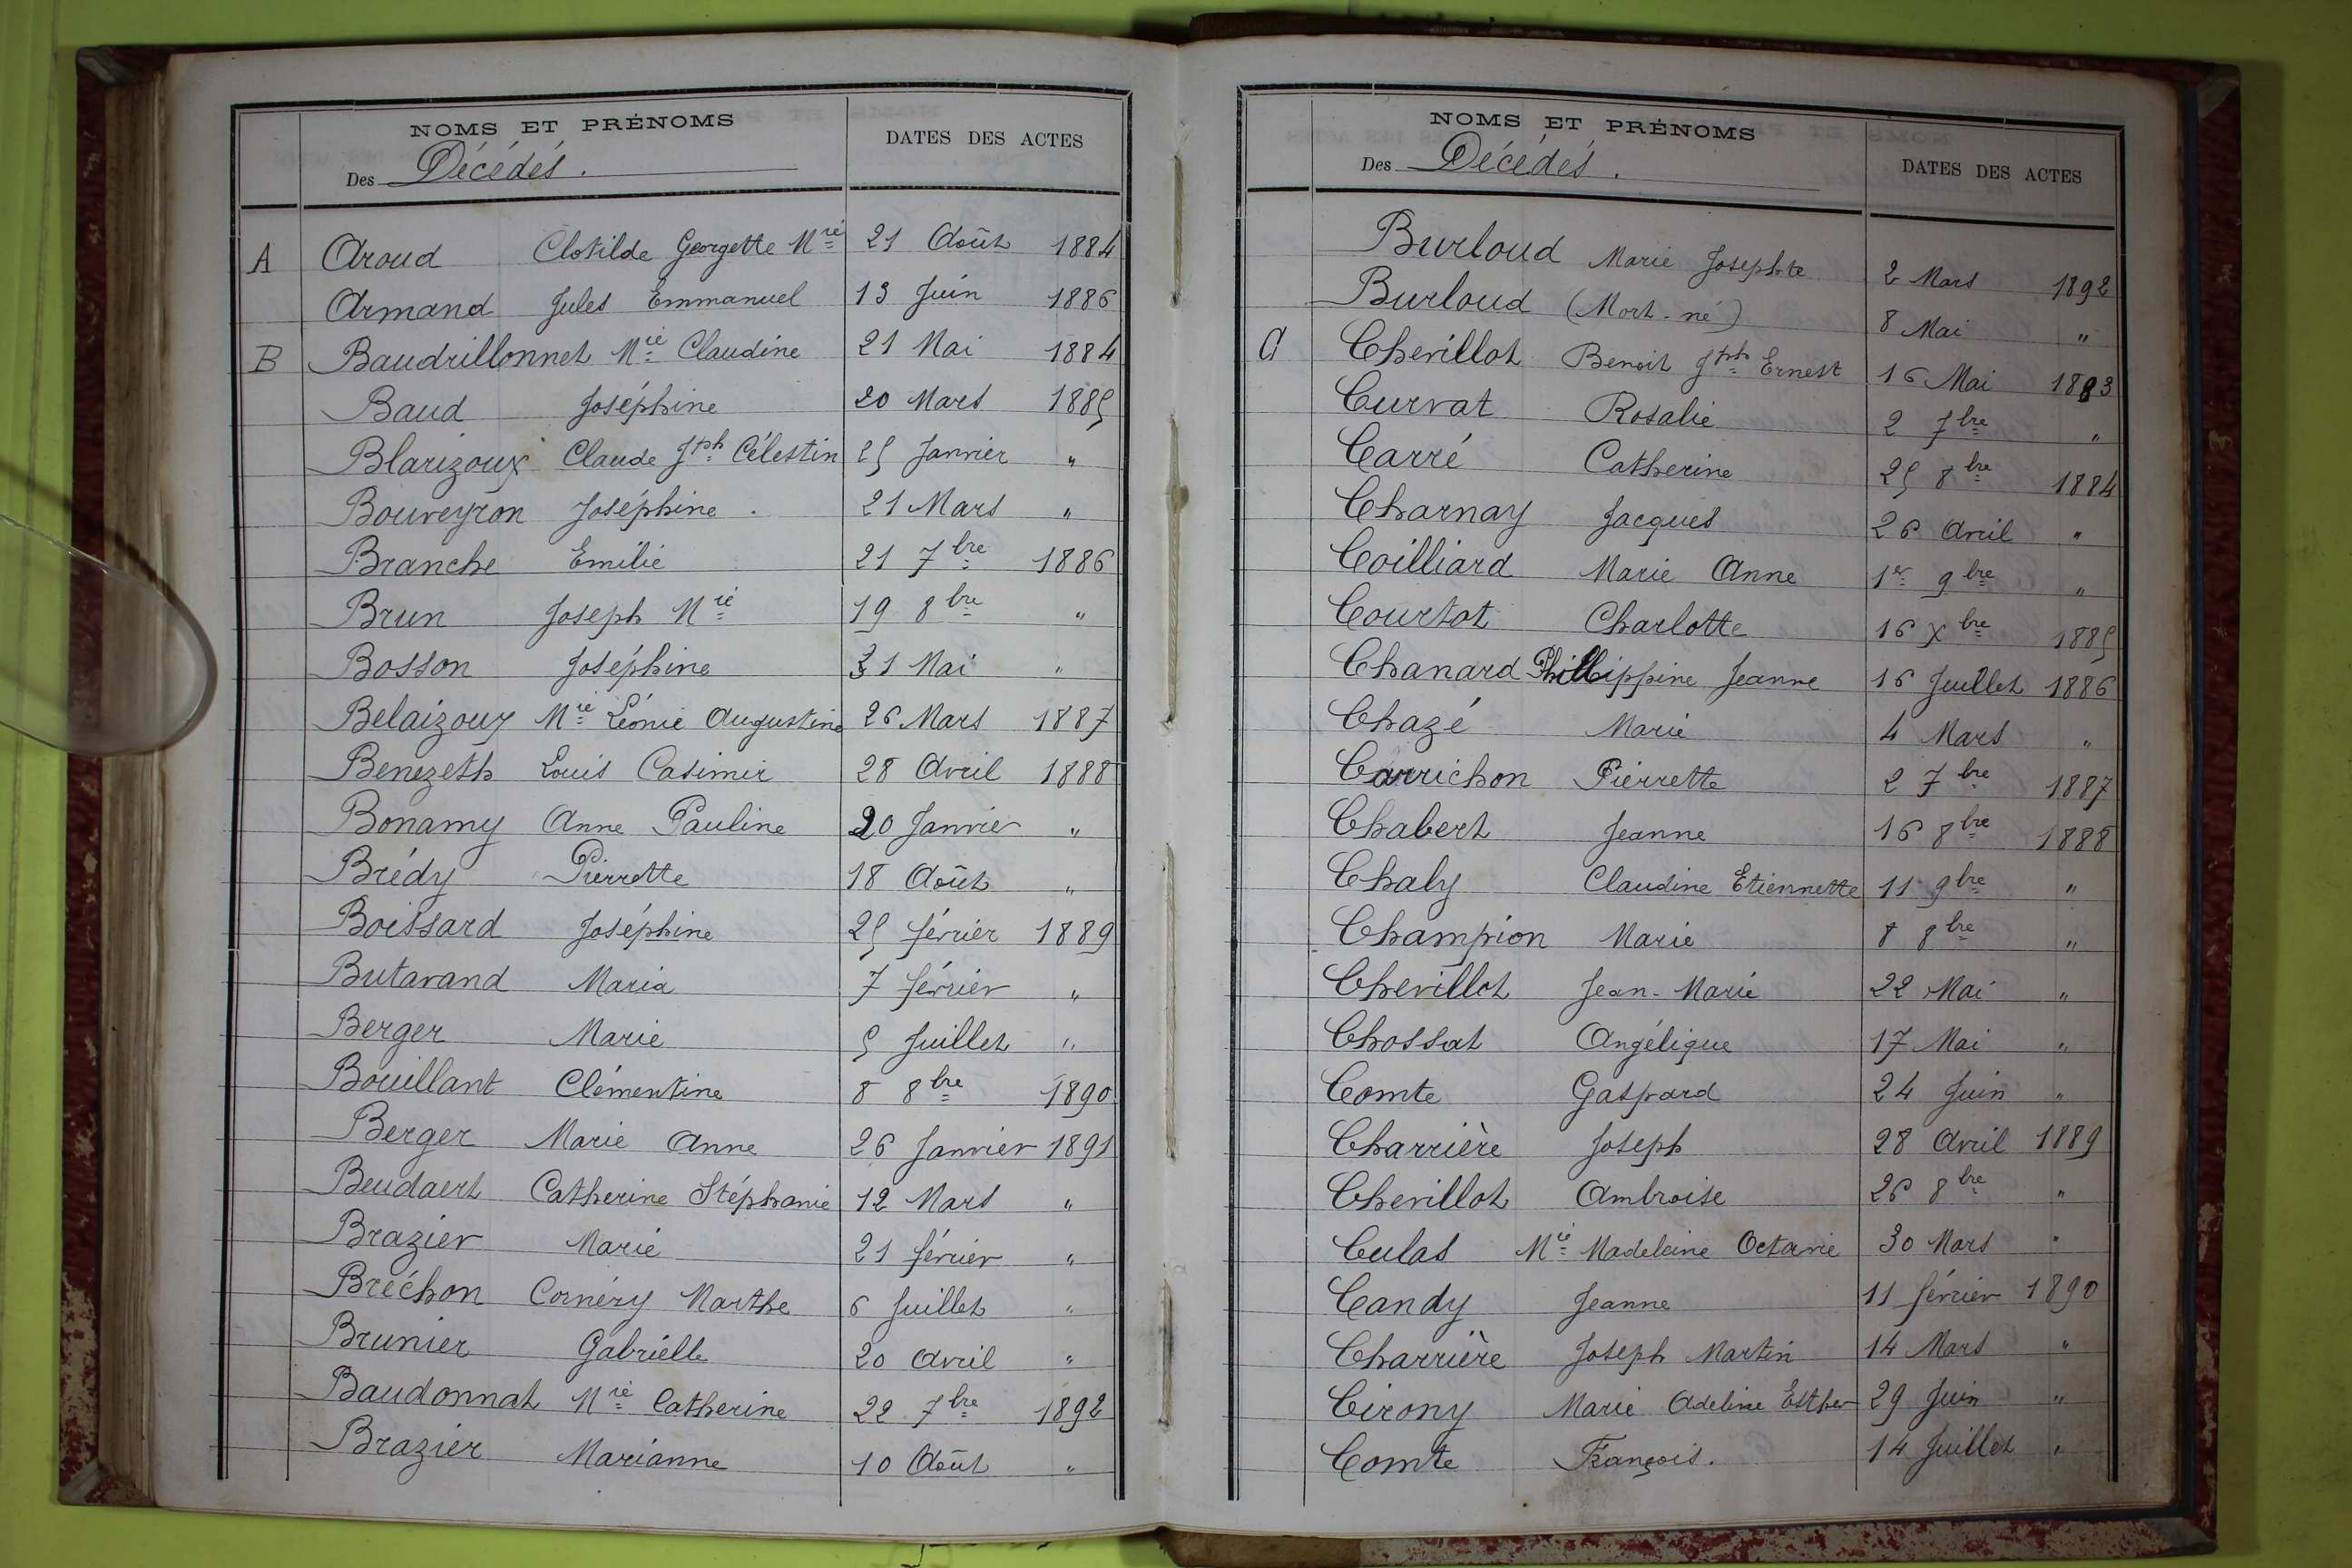 NOMS ET PRÉNOMS
DATES DES ACTES
Des Décédés.
A Aroud Clotilde Georgette Mrie 21 Août 1884
Armand Jules Emmanuel 13 Juin 1886
B Baudrillonnet Mrie Claudine 21 Mai 1884
Baud Joséphine 20 Mars 1885
Blarizoux Claude Jph Célestin 25 Janvier "
Bouveyron Joséphine . 21 Mars "
Branche Emilie 21 7bre 1886
Brun Joseph Mrie 19 8bre "
Bosson Joséphine 31 Mai "
Belaizouy Mrie Léonie Augustine 26 Mars 1887
Benezeth Louis Casimir 28 Avril 1888
Bonamy Anne Pauline 20 Janvier "
Brédy Pierrette 18 Août "
Boissard Joséphine 25 février 1889
Butavand Maria 7 février "
Berger Marie 5 Juillet "
Bouillant Clémentine 8 8bre 1890
Berger Marie Anne 26 Janvier 1891
Beudaert Catherine Stéphanie 12 Mars "
Brazier Marie 21 février "
Bréchon Cornéry Marthe 6 Juillet "
Brunier Gabrielle 20 Avril "
Baudonnat Mrie Catherine 22 7bre 1892
Brazier Marianne 10 Août "
NOMS ET PRÉNOMS
DATES DES ACTES
Des Décédés.
Burloud Marie Josephte 2 Mars 1892
Burloud (Mort-né) 8 Mai "
C Chevillot Benoit Jph Ernest 16 Mai 1883
Curvat Rosalie 2 7bre "
Carré Catherine 25 8bre 1884
Charnay Jacques 26 Avril "
Coilliard Marie Anne 1er 9bre "
Courtot Charlotte 16 Xbre 1885
Chanard Phillippine Jeanne 16 Juillet 1886
Chazé Marie 4 Mars "
Carrichon Pierrette 2 7bre 1887
Chabert Jeanne 16 8bre 1888
Chaly Claudine Etiennette 11 9bre "
Champion Marie 8 8bre "
Chevillot Jean-Marie 22 Mai "
Chossat Angélique 17 Mai "
Comte Gaspard 24 Juin "
Charrière Joseph 28 Avril 1889
Chevillot Ambroise 26 8bre "
Culas Mie Madeleine Octavie 30 Mars "
Candy Jeanne 11 février 1890
Charrière Joseph Martin 14 Mars "
Cirony Marie Adeline Esther 29 Juin "
Comte François. 14 Juillet "